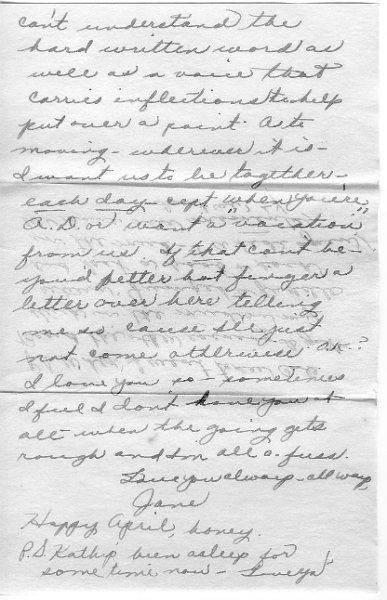 can't understand the
hard written word as
well as a voice that
carries inflections to help
put over a point. As to
moving - wherever it is -
I want us to be together -
each day - cept when you're
A.D. or want a "vacation"
from us. If that can't be -
you'd better hot finger a
letter over here telling
me so cause I'll just
not come otherwise. OK?
I love you so - sometimes
I feel I don't have you at
all when the going gets
rough and I'm all a-fuss.
Love you always - all ways,
Jane
Happy April, honey.
P.S. Kathy's been asleep for
some time now - Love ya!